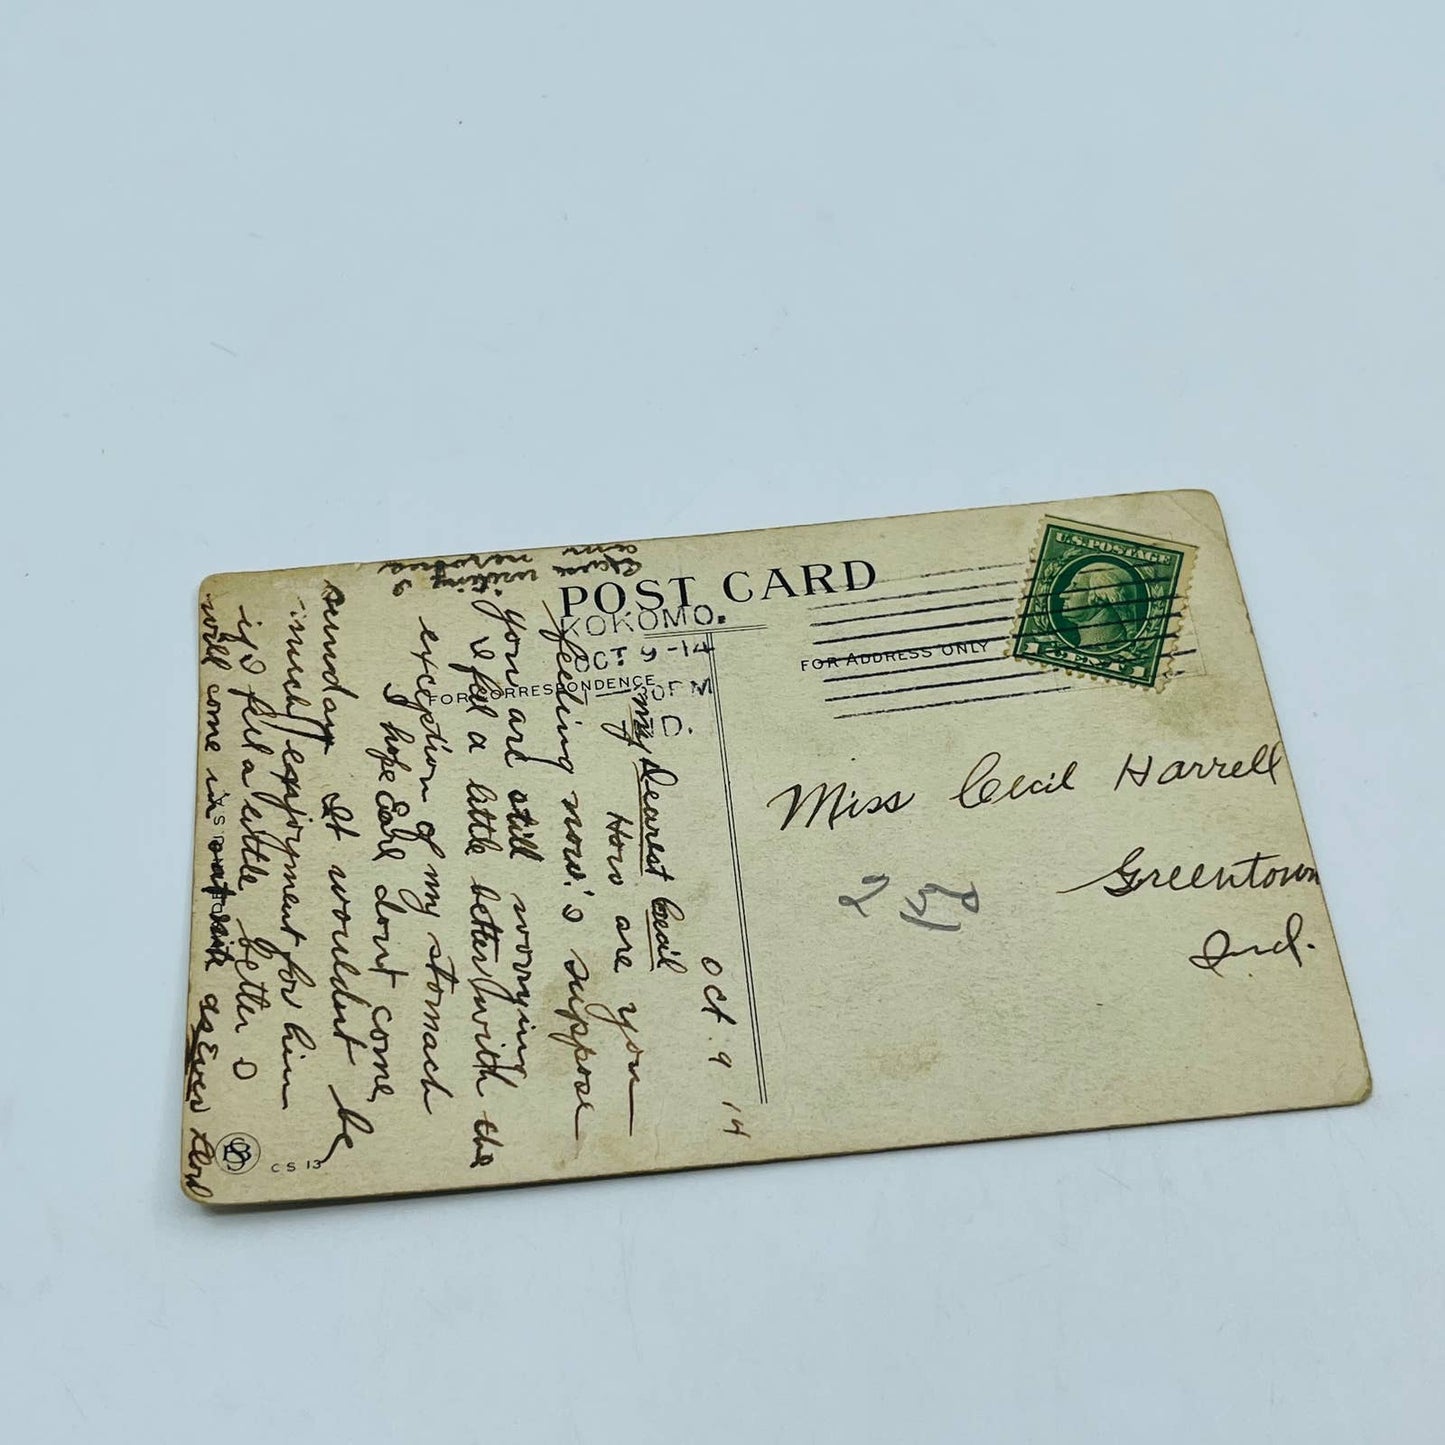 POST CARD
KOKOMO.
OCT 9 -14
30 PM
D.
FOR CORRESPONDENCE
FOR ADDRESS ONLY
U.S. POSTAGE
1 CENT 1
Miss Cecil Harrell
Greentown
Ind.
25
Oct. 9 14
My Dearest Cecil
How are you
feeling now.'s suppose
you are still worrying
I feel a little better with the
exception of my stomach
I hope Earl dont come
sunday It wouldent be
much enjoyment for him
if I feel a little better I
will come in as Ever
writing I
am nervous
C S 13